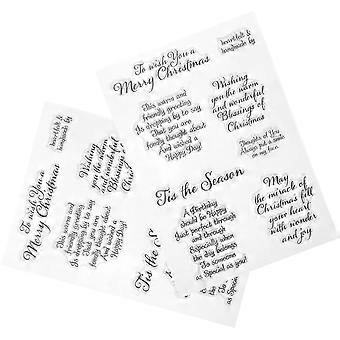 To wish You a
Merry Christmas
heartfelt &
handmade by
This warm and
friendly greeting
Is dropping by to say
That you are
fondly thought about
And wished a
Happy Day!
Wishing
you the warm
and wonderful
Blessings of
Christmas
Thoughts of You
Always put a smile
on my face
Tis the Season
A Birthday
should be Happy
Just perfect
and through
Especially when
the day belongs
To someone
as Special as you!
May
the miracle of
Christmas fill
your heart
with wonder
and joy
heartfelt &
handmade by
To wish You a
Merry Christmas
Wishing
you the warm
and wonderful
Blessings
Christmas
This warm and
friendly greeting
Is dropping by to say
That you are
fondly thought about
And wished a
Happy Day!
Tis the